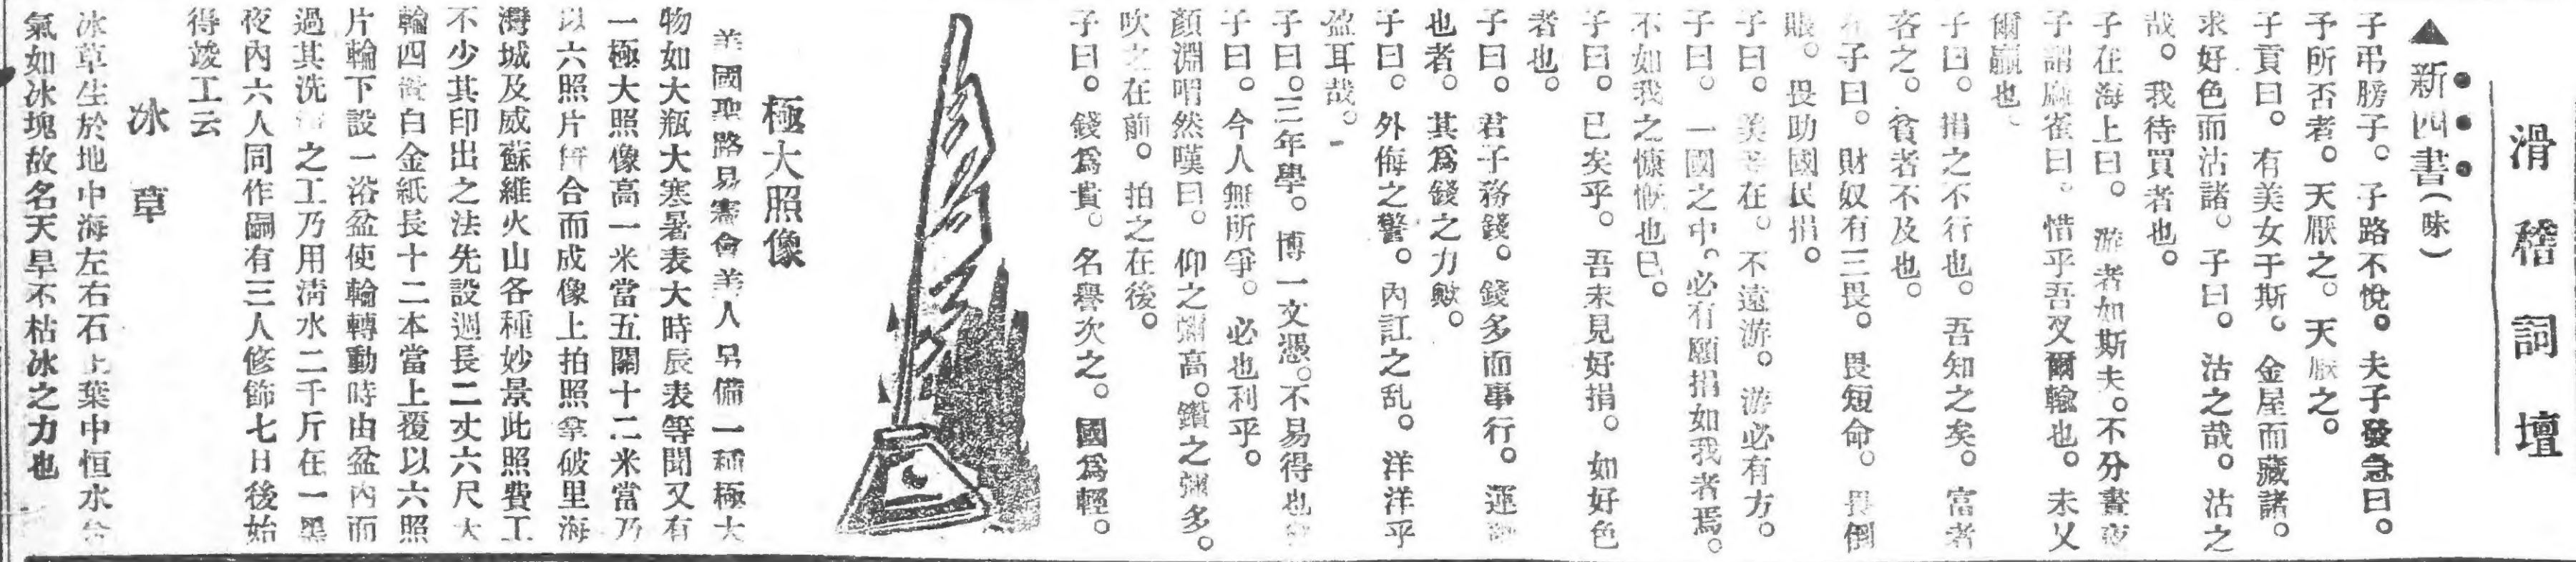 滑稽詞壇
▲新四書（昧）
子弔膀子。子路不悅。夫子發急曰。
予所否者。天厭之。天厭之。
子貢曰。有美女于斯。金屋而藏諸。
求好色而沽諸。子曰。沽之哉。沽之
哉。我待買者也。
子在海上曰。游者如斯夫。不分晝夜
子謂麻雀曰。惜乎吾叉爾輸也。未乂
爾贏也。
子曰。捐之不行也。吾知之矣。富者
吝之。貧者不及也。
子曰。財奴有三畏。畏短命。畏倒
賬。畏助國民捐。
子曰。美等在。不遠游。游必有方。
子曰。一國之中。必有願捐如我者焉。
不如我之慷慨也已。
子曰。已矣乎。吾未見好捐。如好色
者也。
子曰。君子務錢。錢多而事行。運
也者。其爲錢之力歟。
子曰。外侮之警。內訌之乱。洋洋乎
盈耳哉。
子曰。三年學。博一文憑。不易得也
子曰。今人無所爭。必也利乎。
顏淵喟然嘆曰。仰之彌高。鑽之彌多。
吹之在前。拍之在後。
子曰。錢爲貴。名譽次之。國爲輕。
極大照像
美國聖路易賽會美人另備一種極大
物如大瓶大寒暑表大時辰表等聞又有
一極大照像高一米當五闊十二米當乃
以六照片併合而成像上拍照拿破里海
灣城及威蘇維火山各種妙景此照費工
不少其印出之法先設週長二丈六尺大
輪四白金紙長十二本當上覆以六照
片輪下設一浴盆使輪轉動時由盆內而
過其洗之工乃用清水二千斤在一黑
夜內六人同作嗣有三人修飾七日後始
得竣工云
冰草
冰草生於地中海左右石上葉中恒水
氣如冰塊故名天旱不枯冰之力也